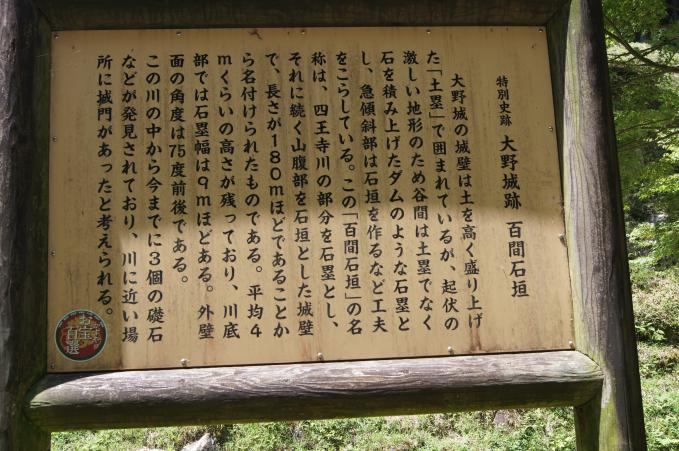 特別史跡 大野城跡 百間石垣
大野城の城壁は土を高く盛り上げ
た「土塁」で囲まれているが、起伏の
激しい地形のため谷間は土塁でなく
石を積み上げたダムのような石塁と
し、急傾斜部は石垣を作るなど工夫
をこらしている。この「百間石垣」の名
称は、四王寺川の部分を石塁とし、
それに続く山腹部を石垣とした城壁
で、長さが180mほどであることか
ら名付けられたものである。平均4
mくらいの高さが残っており、川底
部では石塁幅は9mほどある。外壁
面の角度は75度前後である。
この川の中から今までに3個の礎石
などが発見されており、川に近い場
所に城門があったと考えられる。
お宝
百選